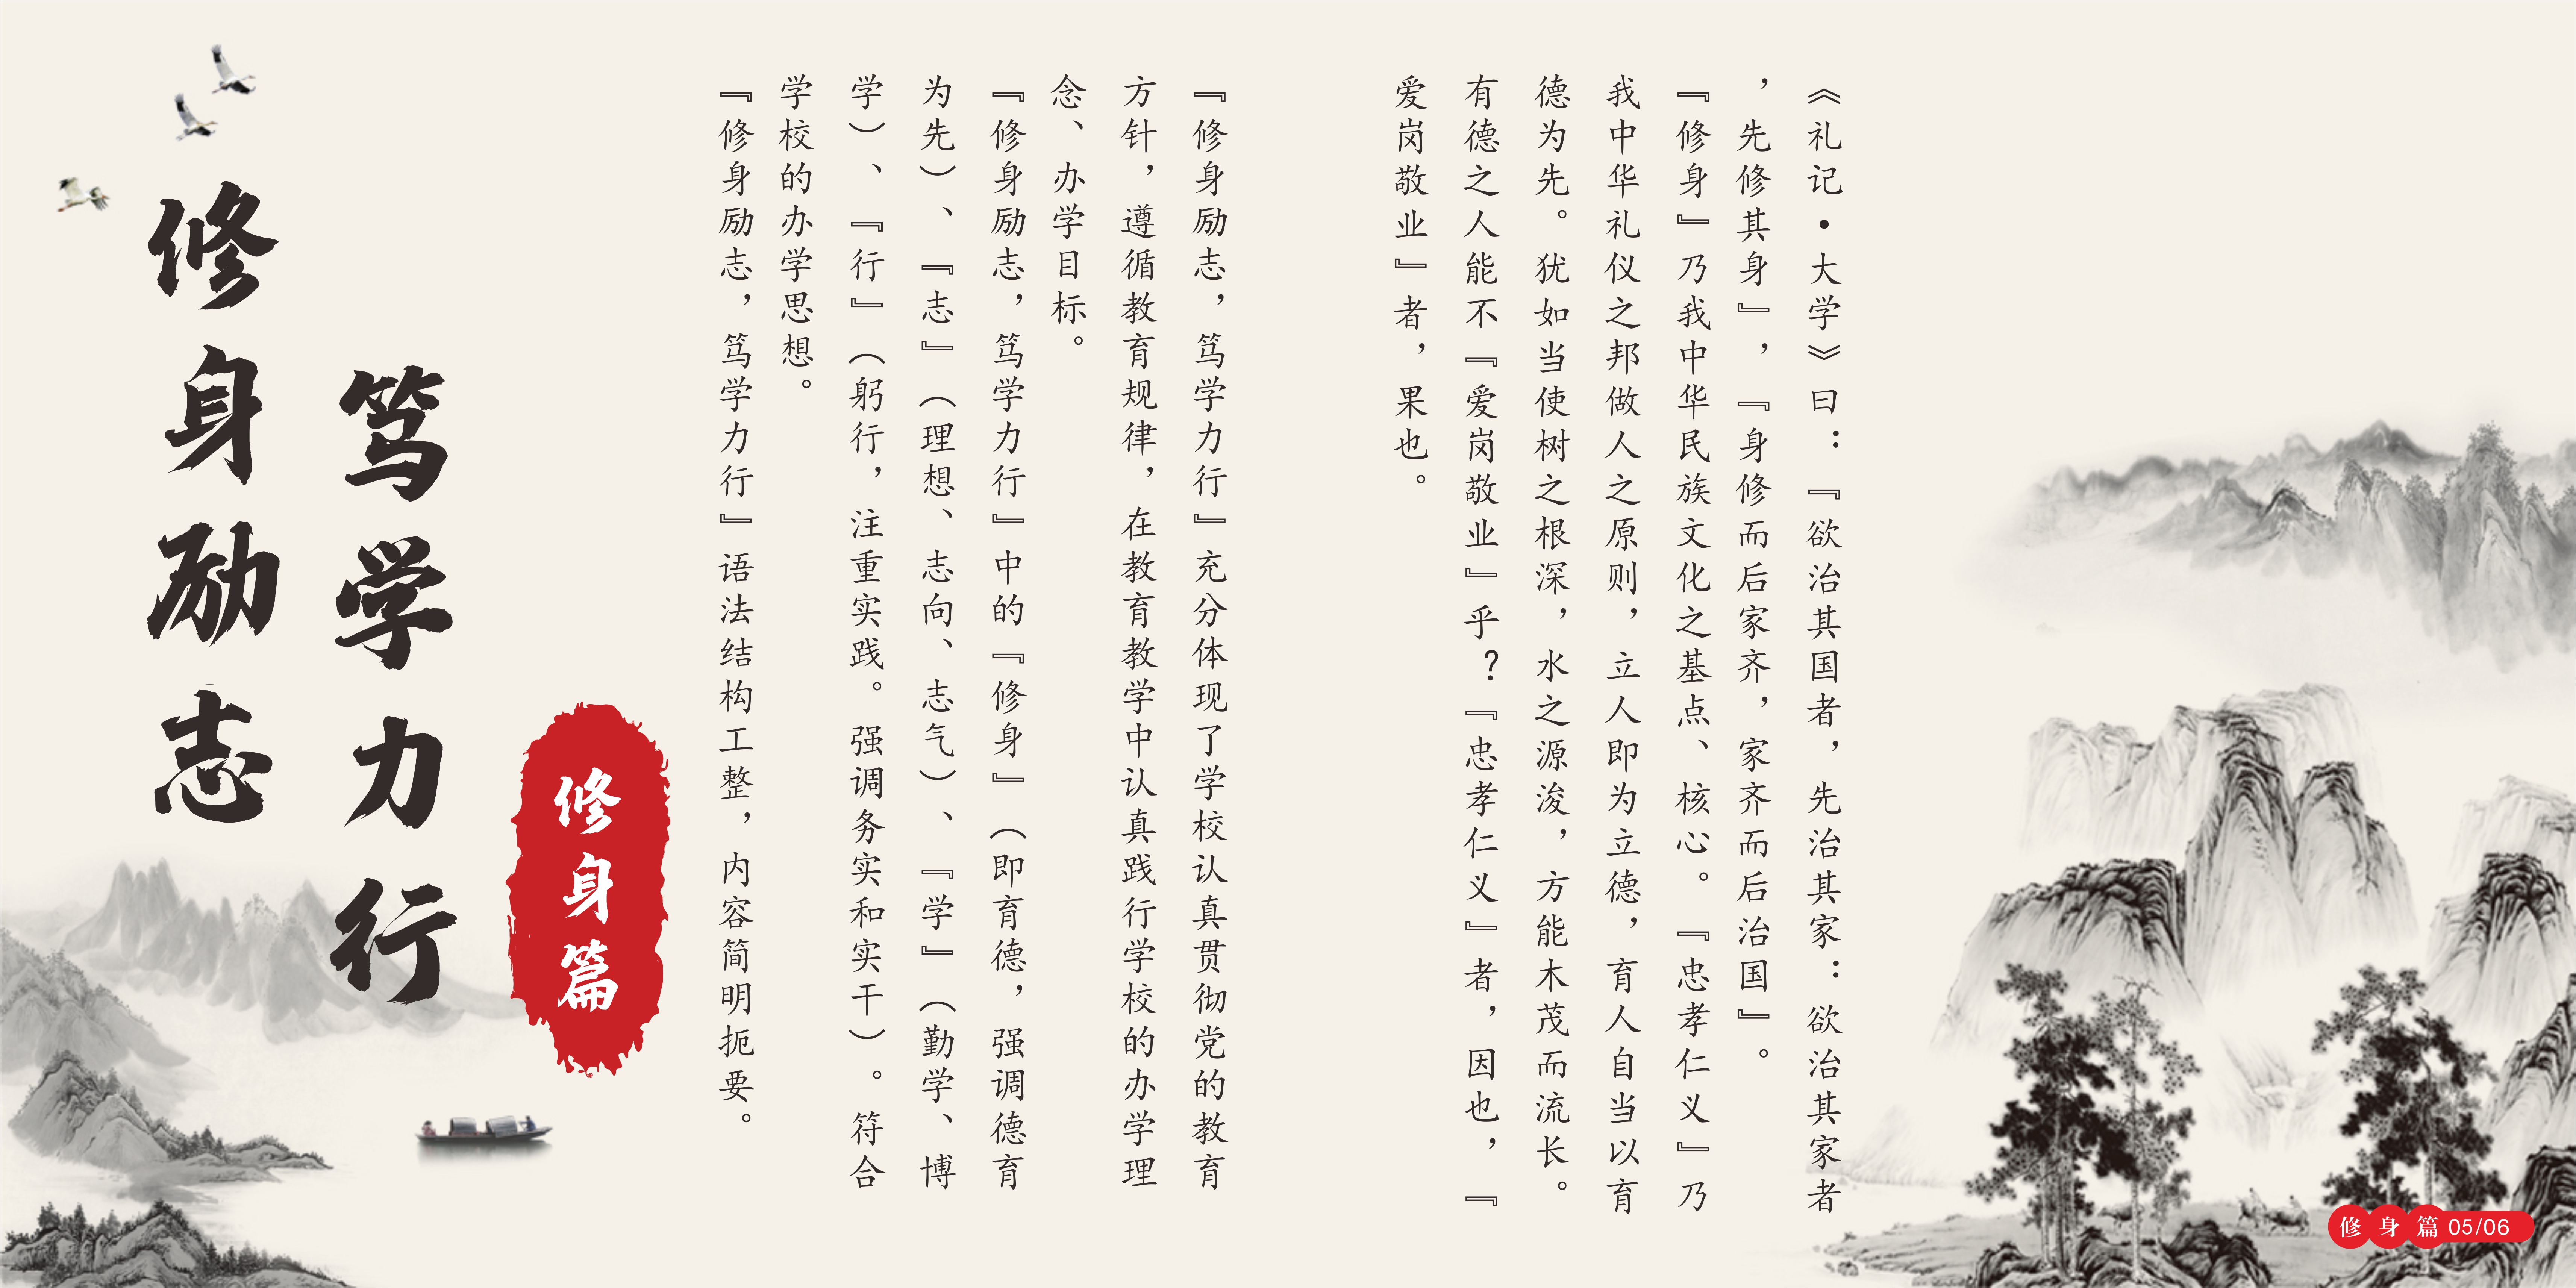 修身励志
笃学力行
修身篇
『修身励志，笃学力行』充分体现了学校认真贯彻党的教育
方针，遵循教育规律，在教育教学中认真践行学校的办学理
念、办学目标。
『修身励志，笃学力行』中的『修身』（即育德，强调德育
为先）、『志』（理想、志向、志气）、『学』（勤学、博
学）、『行』（躬行，注重实践。强调务实和实干）。符合
学校的办学思想。
『修身励志，笃学力行』语法结构工整，内容简明扼要。
《礼记•大学》曰：『欲治其国者，先治其家：欲治其家者
，先修其身』，『身修而后家齐，家齐而后治国』。
『修身』乃我中华民族文化之基点、核心。『忠孝仁义』乃
我中华礼仪之邦做人之原则，立人即为立德，育人自当以育
德为先。犹如当使树之根深，水之源浚，方能木茂而流长。
有德之人能不『爱岗敬业』乎？『忠孝仁义』者，因也，『
爱岗敬业』者，果也。
修身篇 05/06